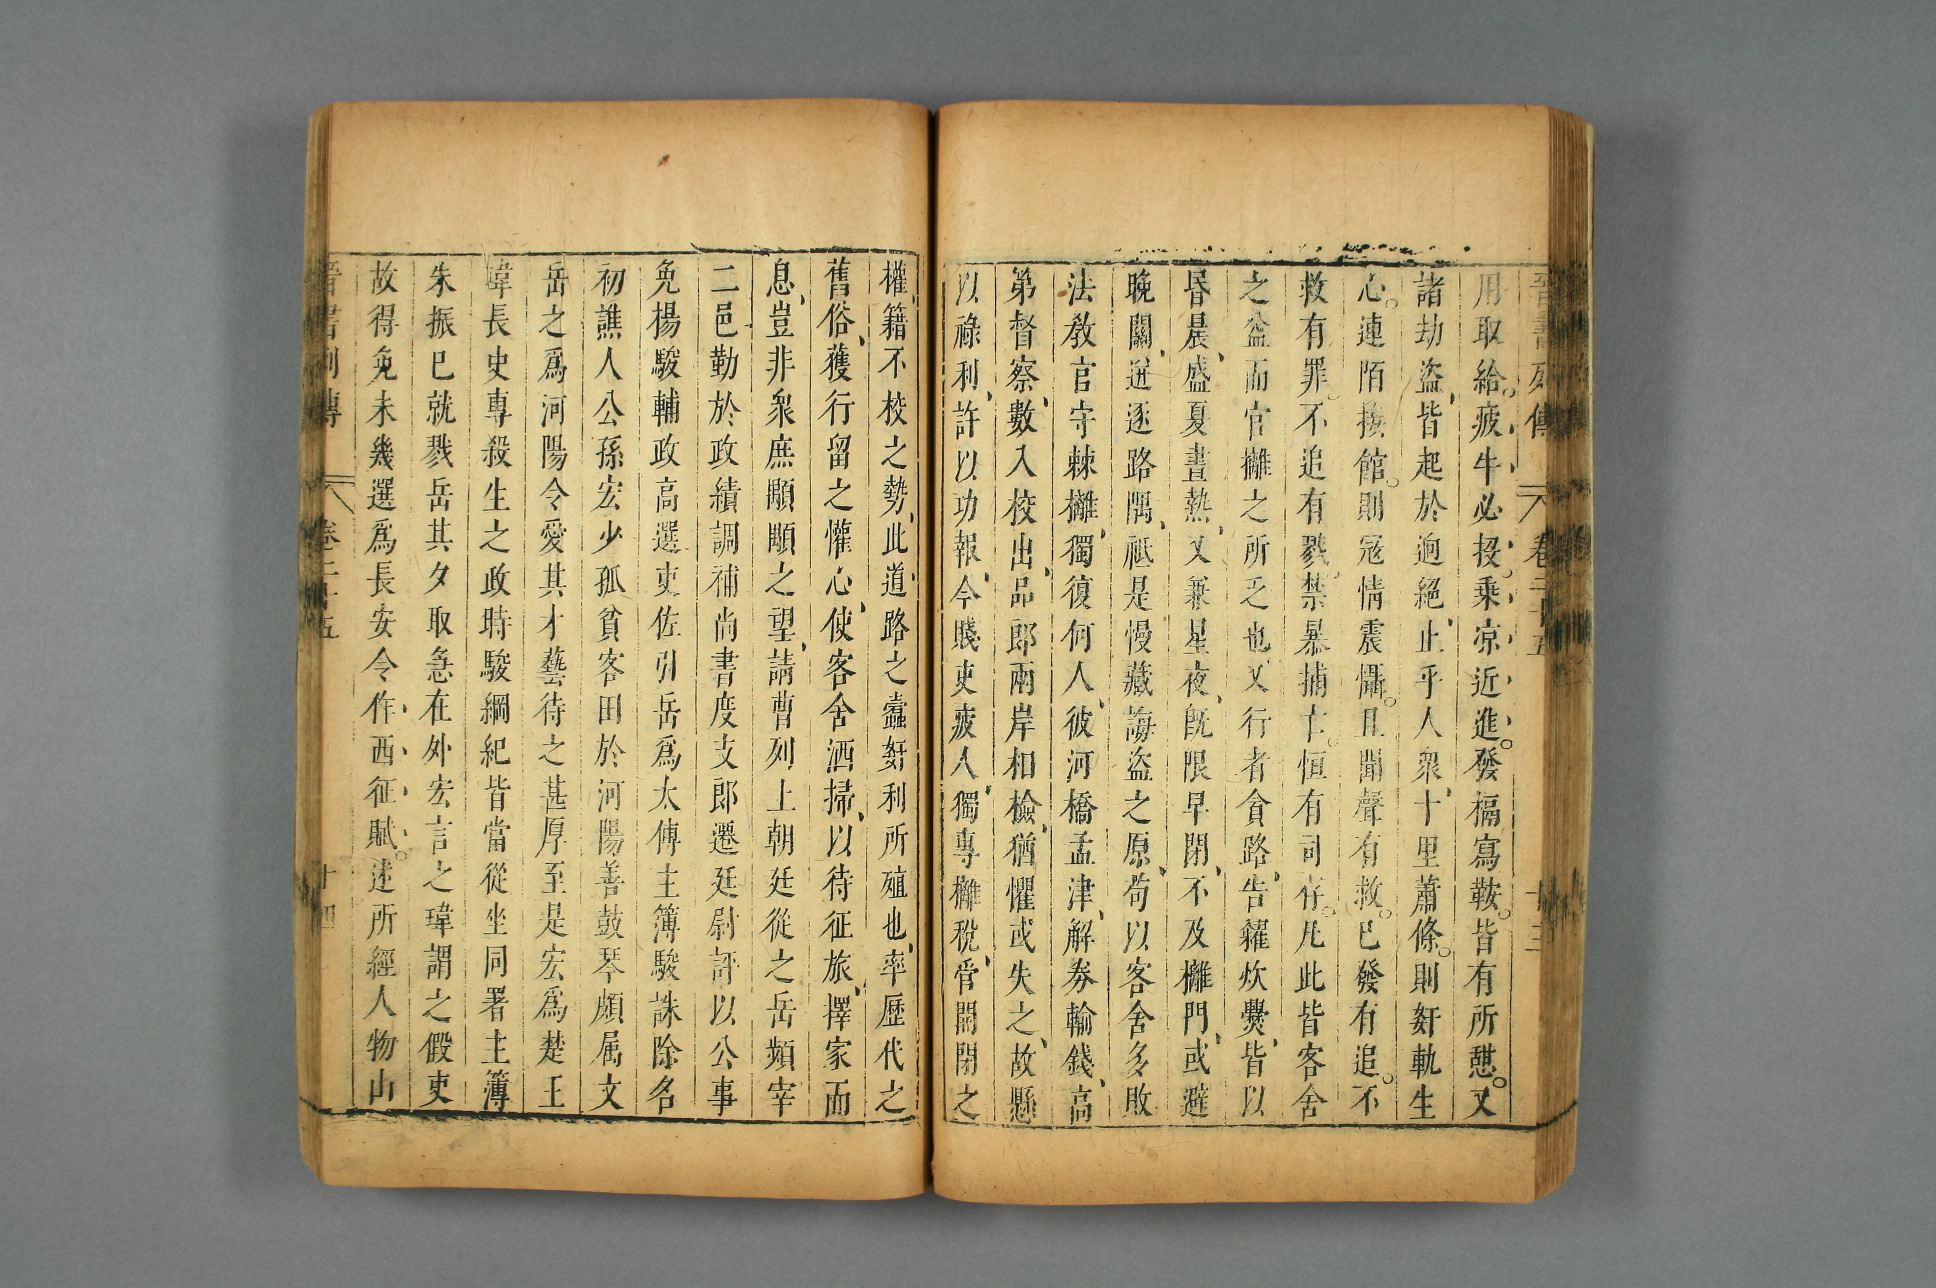 晉書列傳 卷二十五 十三
用取給。疲牛必投。乘凉近進。發槅寫鞍。皆有所憇。又
諸劫盜、皆起於逈絕、止乎人衆、十里蕭條。則姧軌生
心。連陌接館。則寇情震懾。且聞聲有救。已發有追。不
救有罪。不追有戮。禁暴捕亡。恒有司存。凡此皆客舍
之益而官䉪之所乏也、又行者貪路、告糴炊爨、皆以
昬晨、盛夏晝熱、又兼星夜、旣限早閉、不及䉪門、或避
晚關、迸逐路隅、祗是慢藏誨盜之原、苟以客舍多敗
法教官守棘䉪、獨復何人、彼河橋孟津、解劵輸錢、高
第督察、數入校出、品郎兩岸相檢、猶懼或失之、故懸
以祿利、許以功報、今賤吏疲人、獨專䉪稅、管開閉之
權、籍不校之勢、此道、路之蠹姧利所殖也、率歷代之
舊俗、獲行留之懽心、使客舍洒掃、以待征旅、擇家而
息、豈非衆庶顒顒之望、請曹列上朝廷從之岳頻宰
二邑勤於政績調補尚書度支郎遷廷尉評以公事
免楊駿輔政高選吏佐引岳爲太傅主簿駿誅除名
初譙人公孫宏少孤貧客田於河陽善鼓琴頗属文
岳之爲河陽令愛其才藝待之甚厚至是宏爲楚王
瑋長史專殺生之政時駿綱紀皆當從坐同署主簿
朱振巳就戮岳其夕取急在外宏言之瑋謂之假吏
故得免未幾選爲長安令作西征賦。述所經人物山
晉書列傳 卷二十五 十四